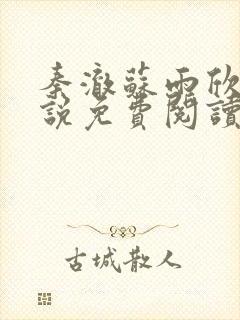 秦澈蘇雨欣
說免費閱讀
古城散人